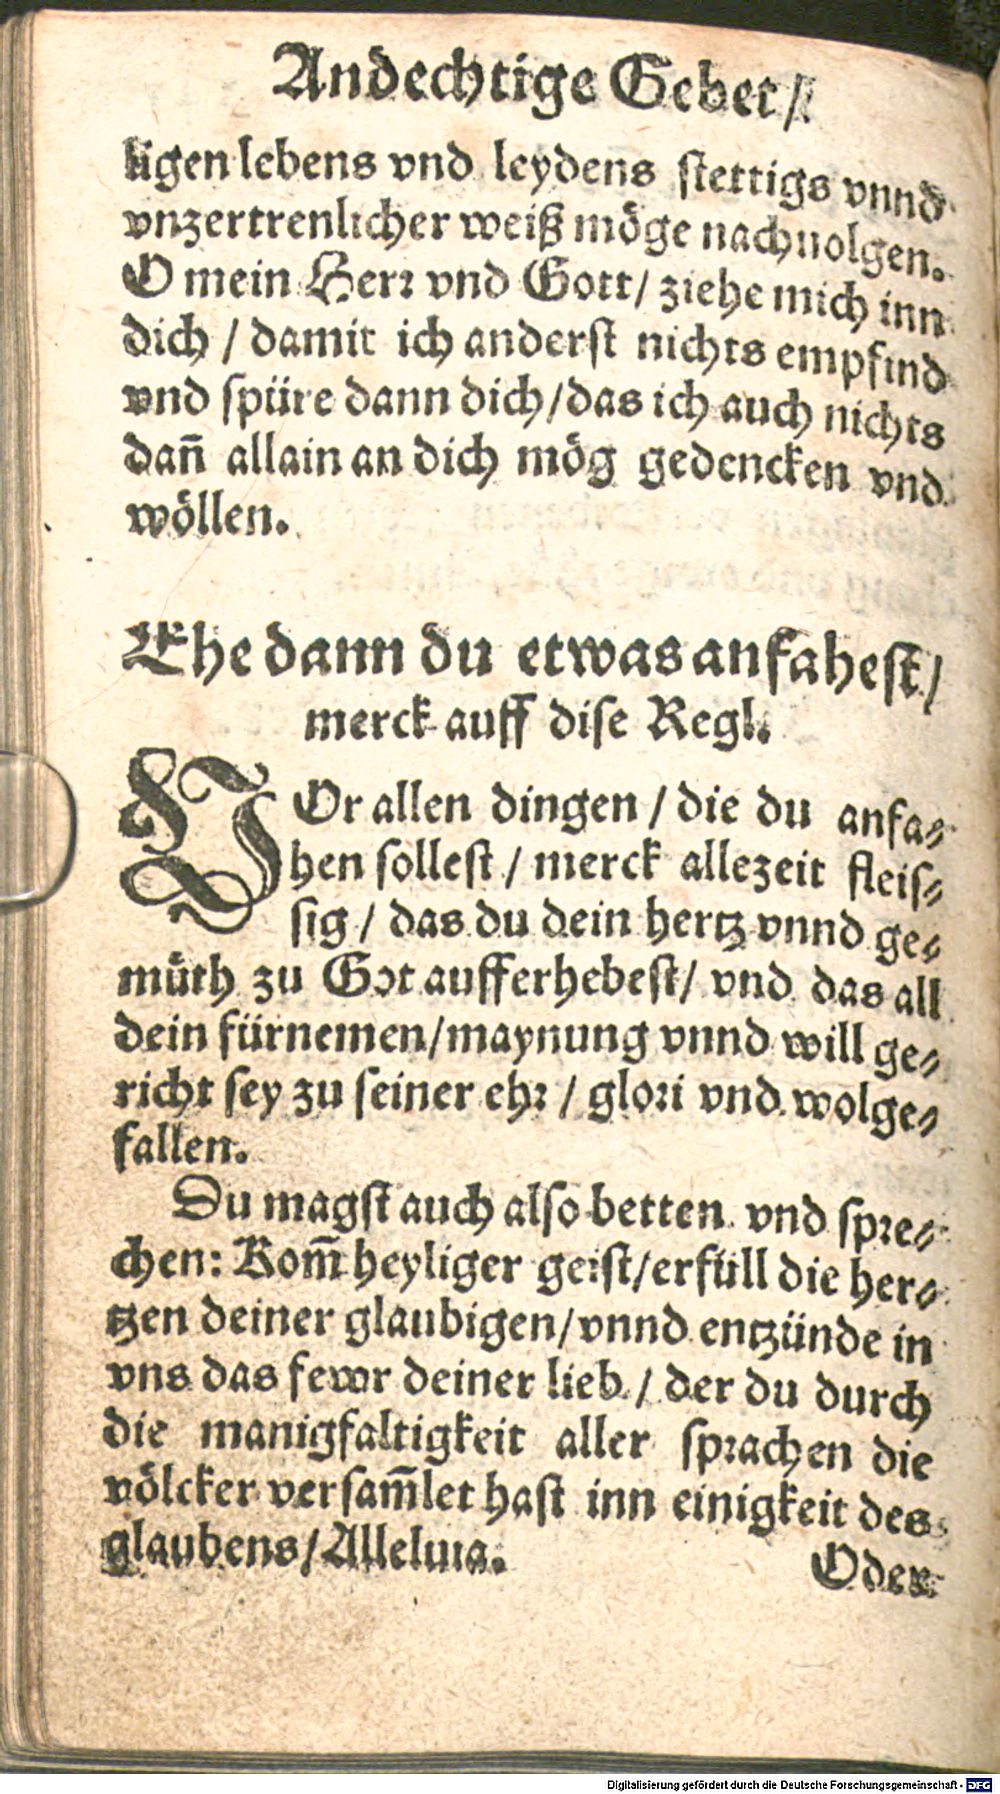 Andechtige Gebet/
ligen lebens vnd leydens stettigs vnnd
vnzertrenlicher weiß möge nachuolgen.
O mein Herr vnd Gott/ ziehe mich inn
dich / damit ich anderst nichts empfind
vnd spüre dann dich/das ich auch nichts
dañ allain an dich mög gedencken vnd
wöllen.
Ehe dann du etwas anfahest/
merck auff dise Regl.
VOr allen dingen / die du anfa-
hen sollest / merck allezeit fleis-
sig / das du dein hertz vnnd ge-
müth zu Got aufferhebest/ vnd das all
dein fürnemen/maynung vnnd will ge-
richt sey zu seiner ehr / glori vnd wolge-
fallen.
Du magst auch also betten vnd spre-
chen: Kom̃ heyliger geist/erfüll die her-
tzen deiner glaubigen/vnnd entzünde in
vns das fewr deiner lieb / der du durch
die manigfaltigkeit aller sprachen die
völcker versam̃let hast inn einigkeit des
glaubens/Alleluia.
Oder
Digitalisierung gefördert durch die Deutsche Forschungsgemeinschaft - DFG